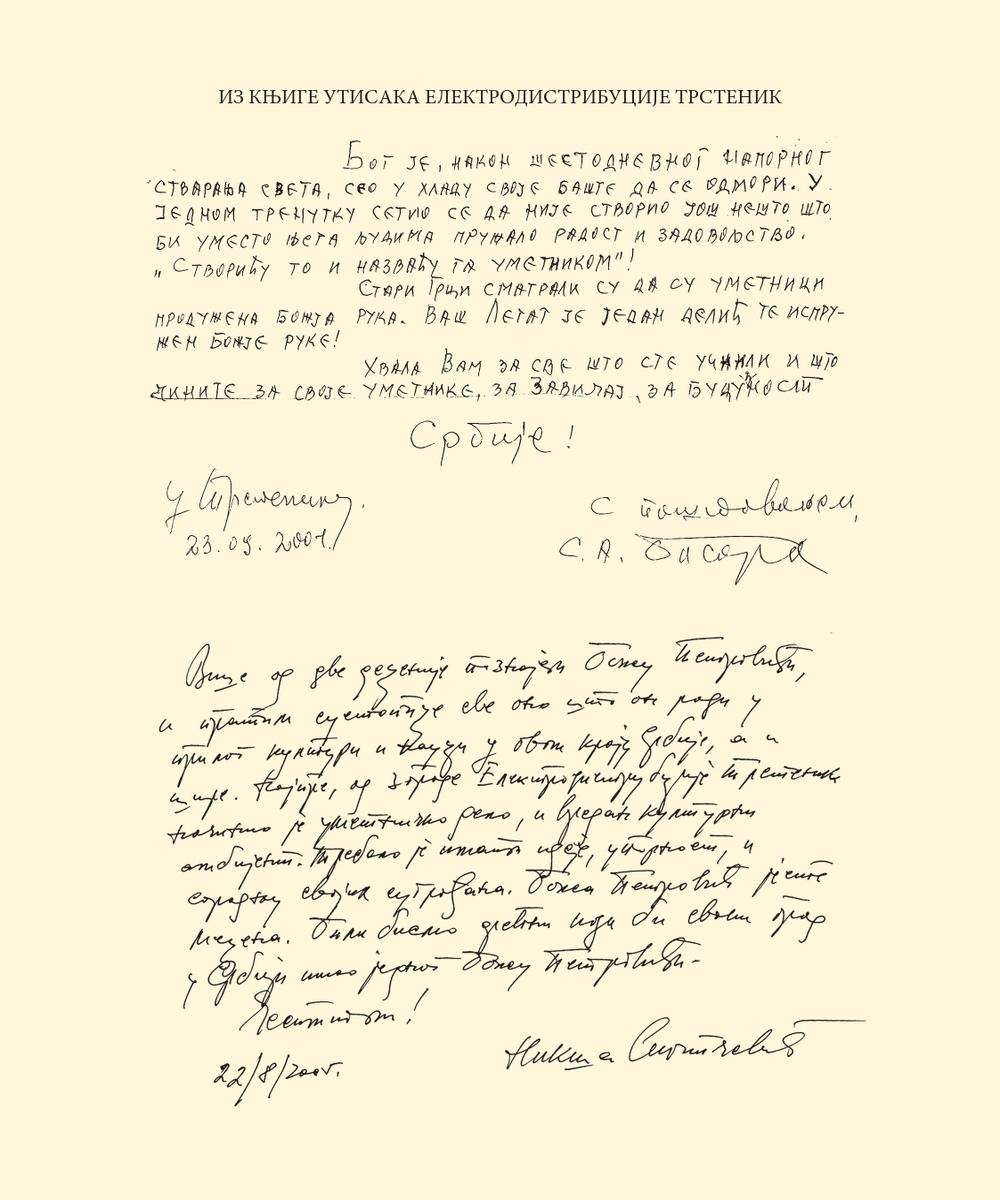 ИЗ КЊИГЕ УТИСАКА ЕЛЕКТРОДИСТРИБУЦИЈЕ ТРСТЕНИК
БОГ ЈЕ, НАКОН ШЕСТОДНЕВНОГ НАПОРНОГ
СТВАРАЊА СВЕТА, СЕО У ХЛАДУ СВОЈЕ БАШТЕ ДА СЕ ОДМОРИ. У
ЈЕДНОМ ТРЕНУТКУ СЕТИО СЕ ДА НИЈЕ СТВОРИО ЈОШ НЕШТО ШТО
БИ УМЕСТО ЊЕГА ЉУДИМА ПРУЖАЛО РАДОСТ И ЗАДОВОЉСТВО.
„СТВОРИЋУ ТО И НАЗВАЋУ ГА УМЕТНИКОМ"!
СТАРИ ГРЦИ СМАТРАЛИ СУ ДА СУ УМЕТНИЦИ
ПРОДУЖЕНА БОЖЈА РУКА. ВАШ ЛЕГАТ ЈЕ ЈЕДАН ДЕЛИЋ ТЕ ИСПРУ-
ЖЕН БОЖЈЕ РУКЕ!
ХВАЛА ВАМ ЗА СВЕ ШТО СТЕ УЧИНИЛИ И ШТО
ЧИНИТЕ ЗА СВОЈЕ УМЕТНИКЕ, ЗА ЗАВИЧАЈ, ЗА БУДУЋНОСТ
Србије!
У Трстенику,
23.09.2001.
С поштовањем,
С. А.
Више од две деценије познајем Божу Петровића,
и пратим све оно што он ради у
прилог култури и науци у овом крају Србије, а и
шире. Најпре, од зграде Електродистрибуције Трстеник
је уметничко дело, и вредан културни
амбијент. Требало је имати идеје, упорност, и
сарадњу својих суграђана. Божа Петровић јесте
мецена. Били бисмо срећни када би сваки град
у Србији имао једног Божу Петровића.
Честитам!
22/8/2005.
Никша Стипчевић